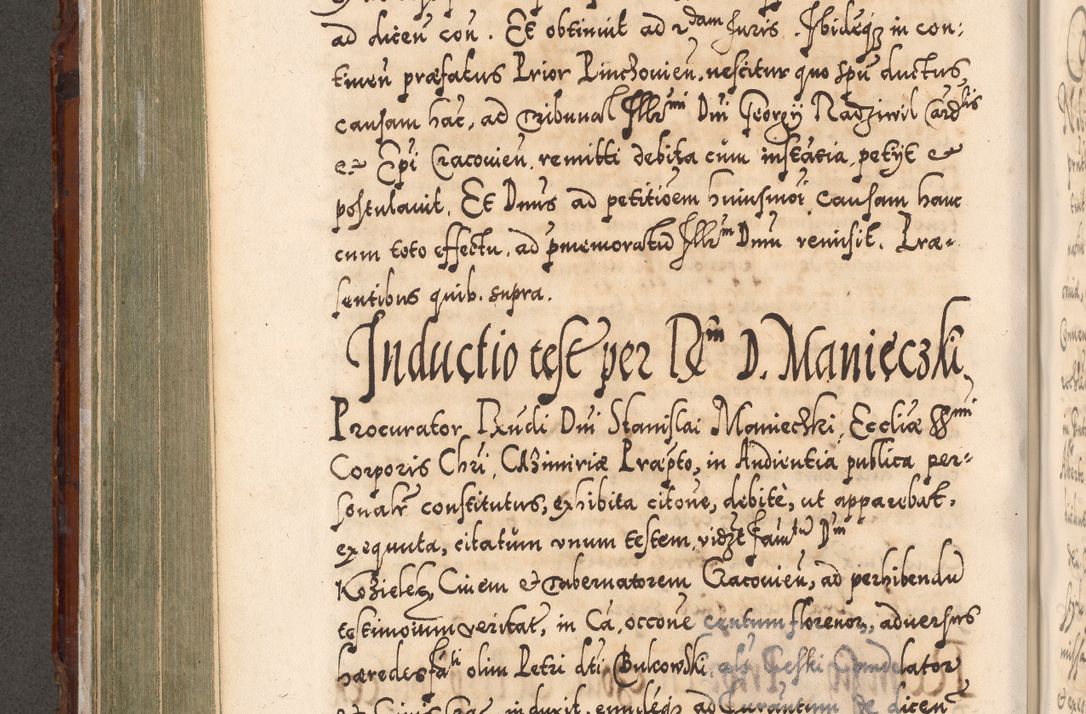 ad dicen̄ con. Et obtinuit ad 2dam Juris. Ibideq̃ in con:
tinen̄ præfatus Prior Pinczouien̄. nescitur quo spū ductus,
causam hãc, ad Tribunal Illr̃mi Dn̄i Georgij Radziwil Cardlis
& Epi Cracouien̄. remitti debita cūm instãtia petijt &
postulauit. Et Dnūs ad petitioēm huiusmoi causam hanc
cum toto effectu, ad pmemoratū Illr̃m Dnū remisit. Præ-
sentibus quib. supra.
Inductio test per Rm D. Manięczki
Procurator Rxūdi Dn̄i Stanislai Manieczki, Eccliæ SSmi
Corporis Chri, Casimiriæ Præpto, in Audientia publica per-
sonalr̃ constitutus, exhibita citone, debitè, ut apparebat,
exequuta, citatūm vnum testem, vidzt famtū Dm
Kozielek, Ciuem & Tabernatorem Cracouien̄, ad perhibendū
testimoium veritat, in Cā, occone centum florenor, aduersus
hæredes fati olim Petri dti Bukowski, als Geski Candelator
et Ciuis Crac. induxit, eumdeq̃ ad Jurantum de dicen̄